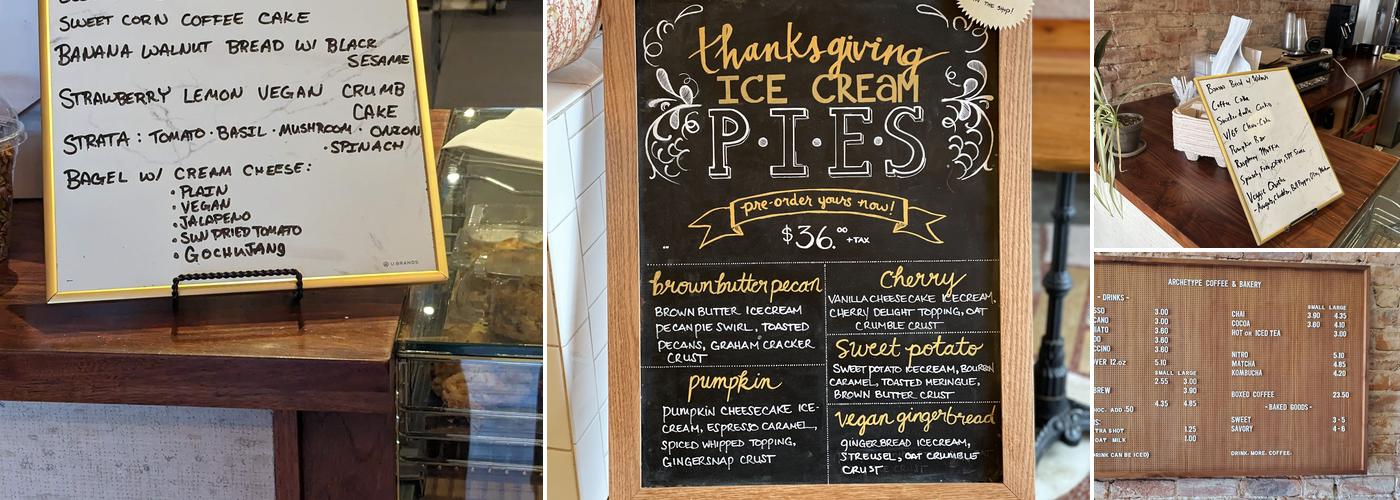 SWEET CORN COFFEE CAKE
BANANA WALNUT BREAD W/ BLACK
SESAME
STRAWBERRY LEMON VEGAN CRUMB
CAKE
STRATA : TOMATO · BASIL · MUSHROOM · ONION
· SPINACH
BAGEL W/ CREAM CHEESE:
• PLAIN
• VEGAN
• JALAPENO
• SUN DRIED TOMATO
• GOCHUJANG
U BRANDS
IN THE SHOP!
thanksgiving
ICE CREAM
P·I·E·S
pre-order yours now!
$36.00 +TAX
brown butter pecan
BROWN BUTTER ICECREAM
PECAN PIE SWIRL, TOASTED
PECANS, GRAHAM CRACKER
CRUST
pumpkin
PUMPKIN CHEESECAKE ICE-
CREAM, ESPRESSO CARAMEL,
SPICED WHIPPED TOPPING,
GINGERSNAP CRUST
Cherry
VANILLA CHEESECAKE ICECREAM,
CHERRY DELIGHT TOPPING, OAT
CRUMBLE CRUST
Sweet potato
SWEET POTATO ICECREAM, BOURBON
CARAMEL, TOASTED MERINGUE,
BROWN BUTTER CRUST
vegan gingerbread
GINGERBREAD ICECREAM,
STREUSEL, OAT CRUMBLE
CRUST
Banana Bread w/ Walnuts
Coffee Cake
Snickerdoodle Cookie
V/GF Choc. Cake
Pumpkin Bar
Raspberry Muffin
Veggie Quiche
ARCHETYPE COFFEE & BAKERY
- DRINKS -
SSO 3.00
CANO 3.00
IATO 3.60
DO 3.60
CCINO 3.60
OVER 12.oz 5.10
SMALL LARGE
2.55 3.00
BREW 3.90
4.35 4.85
HOC. ADD .50
S:
TRA SHOT 1.25
OAT MILK 1.00
DRINK CAN BE ICED)
SMALL LARGE
CHAI 3.90 4.35
COCOA 3.60 4.10
HOT OR ICED TEA 3.00
NITRO 5.10
MATCHA 4.85
KOMBUCHA 4.20
BOXED COFFEE 23.50
-BAKED GOODS-
SWEET 3-5
SAVORY 4-6
DRINK. MORE. COFFEE.